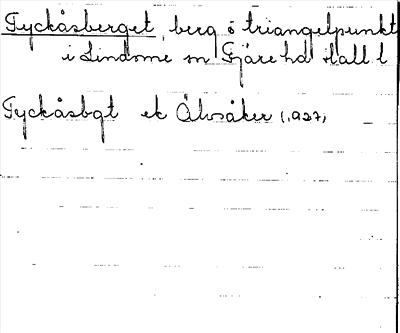 Tyckåsberget, berg o triangelpunkt
i Lindome sn Fjäre hd Hall l
Tyckåsbgt ek Älvsåker (1927)